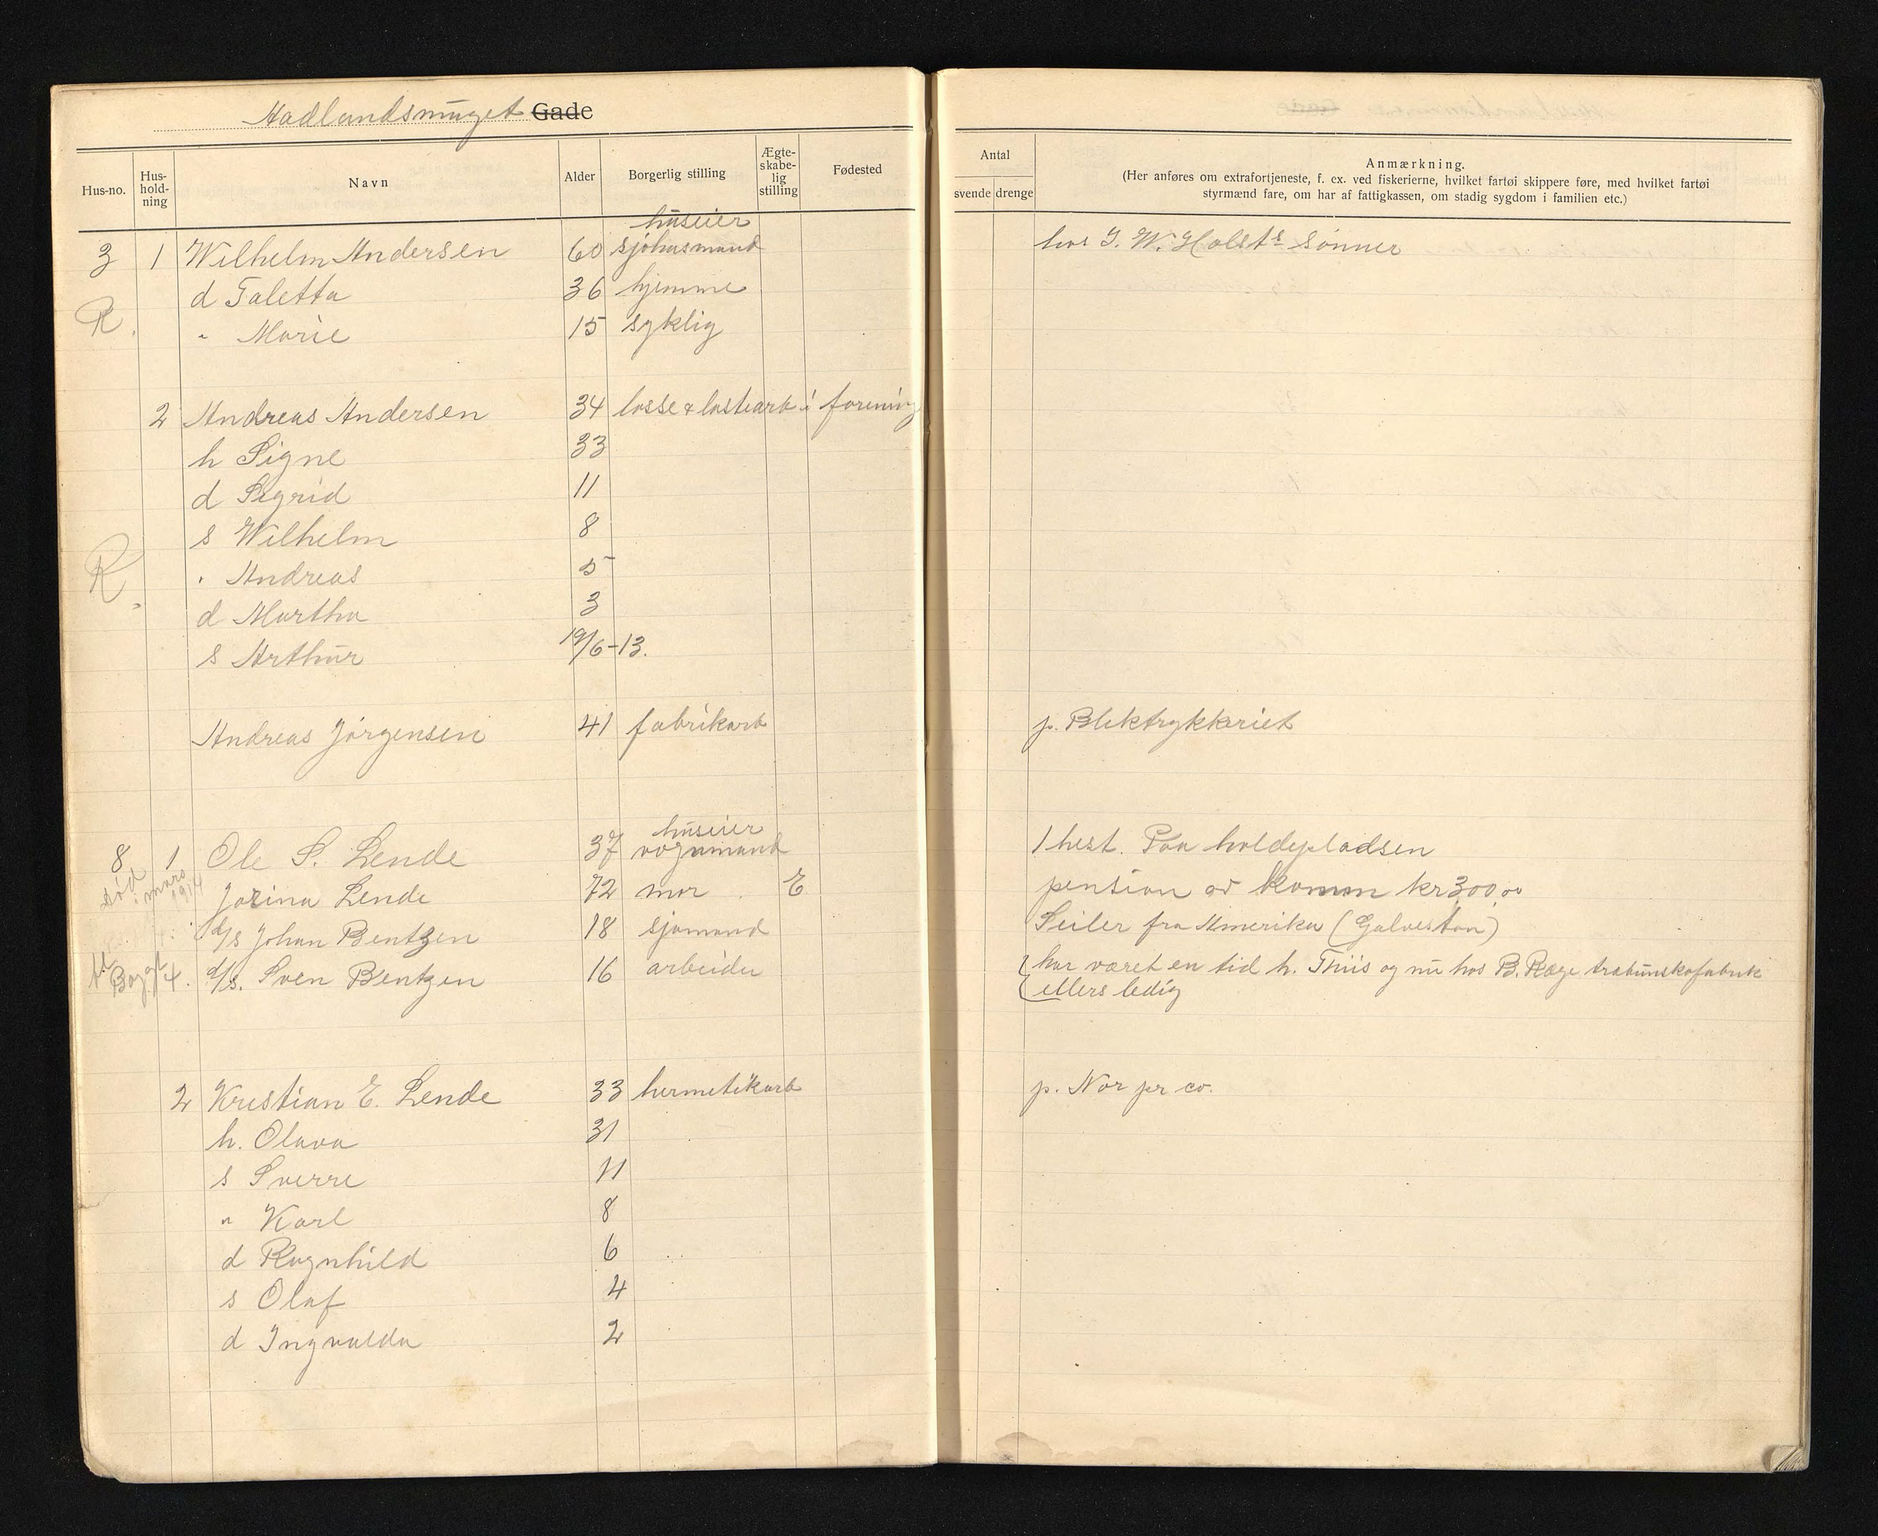 Hadlandsmuget Gade
Hus-no. Hus-hold-ning Navn Alder Borgerlig stilling Ægte-skabe-lig stilling Fødested
Antal svende drenge
Anmærkning.
(Her anføres om extrafortjeneste, f. ex. ved fiskerierne, hvilket fartøi skippere føre, med hvilket fartøi
styrmænd fare, om har af fattigkassen, om stadig sygdom i familien etc.)
huseier
3 1 Wilhelm Andersen 60 sjøhusmand hos I. W. Holsts Sønner
d Taletta 36 hjemme
R. " Marie 15 syklig
2 Andreas Andersen 34 losse & lastearb i forening
h Signe 33
d Sigrid 11
s Wilhelm 8
R. " Andreas 5
d Martha 3
s Arthur 19/6-13.
Andreas Jørgensen 41 fabrikarb p. Bliktrykkeriet
huseier
8 1 Ole S. Lende 37 vognmand 1 hest. Paa holdepladsen
død i mars 1914 Jorina Lende 72 mor E pension av komm kr 300,00
d/s Johan Bentzen 18 sjømand Seiler fra Amerika (Galveston)
d/s. Sven Bentzen 16 arbeider har været en tid h. Thiis og nu hos B. Ræge træbunskofabrik
ellers ledig
2 Kristian E. Lende 33 hermetikarb p. Nor pr co.
h. Olava 31
s Sverre 11
" Karl 8
d Ragnhild 6
s Olaf 4
d Ingvalda 2